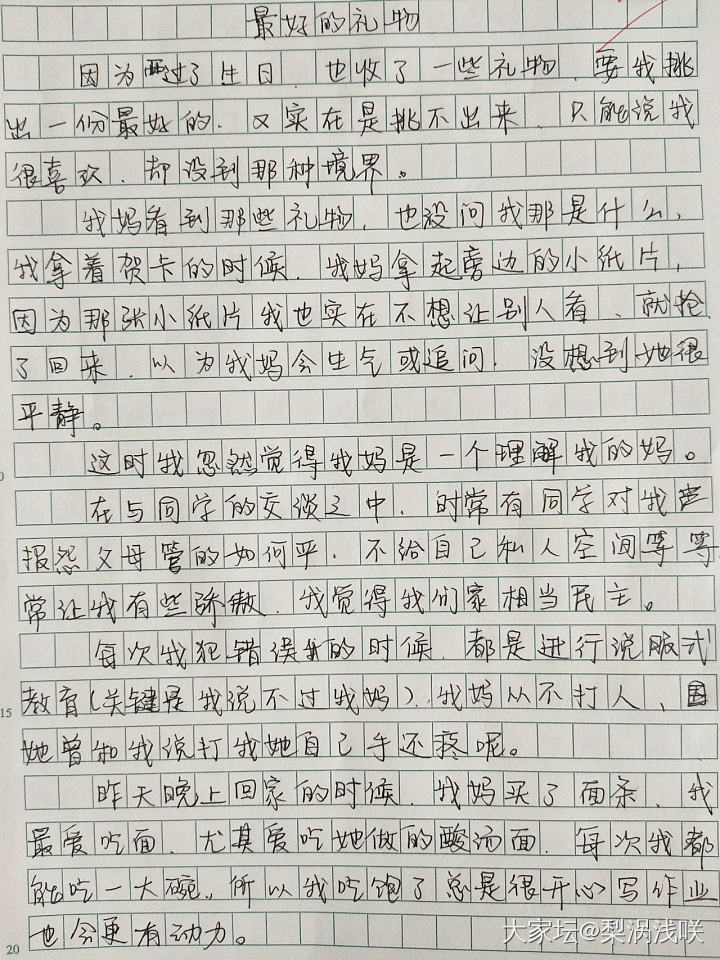 最好的礼物
因为过了生日，也收了一些礼物，要我挑
出一份最好的，又实在是挑不出来，只能说我
很喜欢，却没到那种境界。
我妈看到那些礼物，也没问我那是什么，
我拿着贺卡的时候，我妈拿起旁边的小纸片，
因为那张小纸片我也实在不想让别人看，就抢
了回来，以为我妈会生气或追问，没想到她很
平静。
这时我忽然觉得我妈是一个理解我的妈。
在与同学的交谈之中，时常有同学对我
报怨父母管的如何严，不给自己私人空间等等，
常让我有些骄傲，我觉得我们家相当民主。
每次我犯错误的时候，都是进行说服式
教育（关键是我说不过我妈），我妈从不打人，因
她曾和我说打我她自己手还疼呢。
昨天晚上回家的时候，我妈买了面条，我
最爱吃面，尤其爱吃她做的酸汤面，每次我都
能吃一大碗，所以我吃饱了总是很开心写作业
也会更有动力。
15
20
大家坛@梨涡浅咲